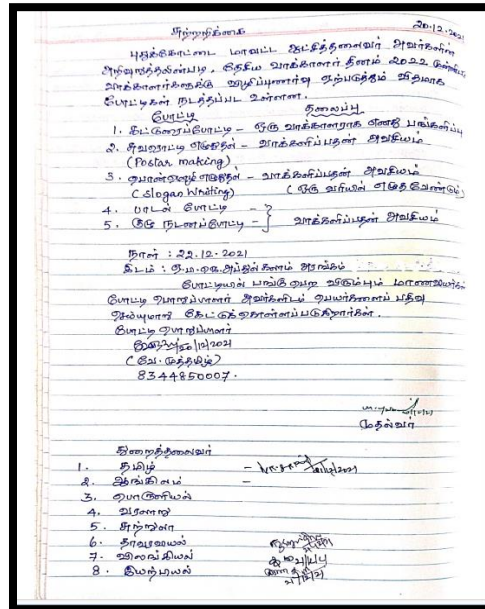 சுற்றறிக்கை
20.12.2021
புதுக்கோட்டை மாவட்ட ஆட்சித்தலைவர் அவர்களின்
அறிவுறுத்தலின்படி, தேசிய வாக்காளர் தினம் 2022 முன்னிட்டு
வாக்காளர்களுக்கு விழிப்புணர்வு ஏற்படுத்தும் விதமாக
போட்டிகள் நடத்தப்பட உள்ளன.
போட்டி தலைப்பு
1. கட்டுரைப்போட்டி - ஒரு வாக்காளராக எனது பங்களிப்பு
2. சுவரொட்டி எழுதுதல் - வாக்களிப்பதன் அவசியம்
(Postar making)
3. பொன்மொழி எழுதுதல் - வாக்களிப்பதன் அவசியம்
(slogan Writing) (ஒரு வரியில் எழுத வேண்டும்)
4. பாடல் போட்டி -
5. குழு நடனப்போட்டி - } வாக்களிப்பதன் அவசியம்
நாள் : 22.12.2021
இடம் : ஏ.பி.ஜெ.அப்துல் கலாம் அரங்கம்
போட்டியில் பங்கு பெற விரும்பும் மாணவியர்கள்
போட்டி பொறுப்பாளர் அவர்களிடம் பெயர்களைப் பதிவு
செய்யுமாறு கேட்டுக்கொள்ளப்படுகிறார்கள்.
போட்டி பொறுப்பாளர்
20/12/2021
(வே. முத்தமிழ்)
8344850007.
முதல்வர்
துறைத்தலைவர்
1. தமிழ் - 21/12/2021
2. ஆங்கிலம் -
3. பொருளியல்
4. வரலாறு
5. சுற்றுலா
6. தாவரவியல்
7. விலங்கியல்
8. இயற்பியல்